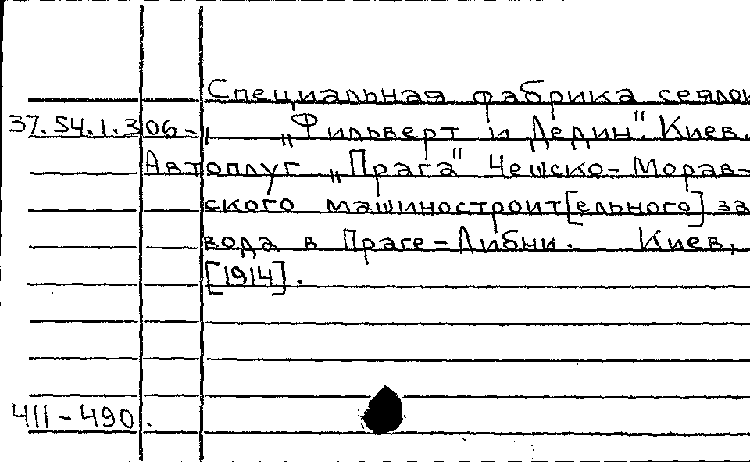 Специальная фабрика сеялок
37.54.1.306. „Фильверт и Дедин". Киев.
Автоплуг „Прага" Чешско-Морав-
ского машиностроит[ельного] за
вода в Праге-Либни. Киев,
[1914].
411-490.